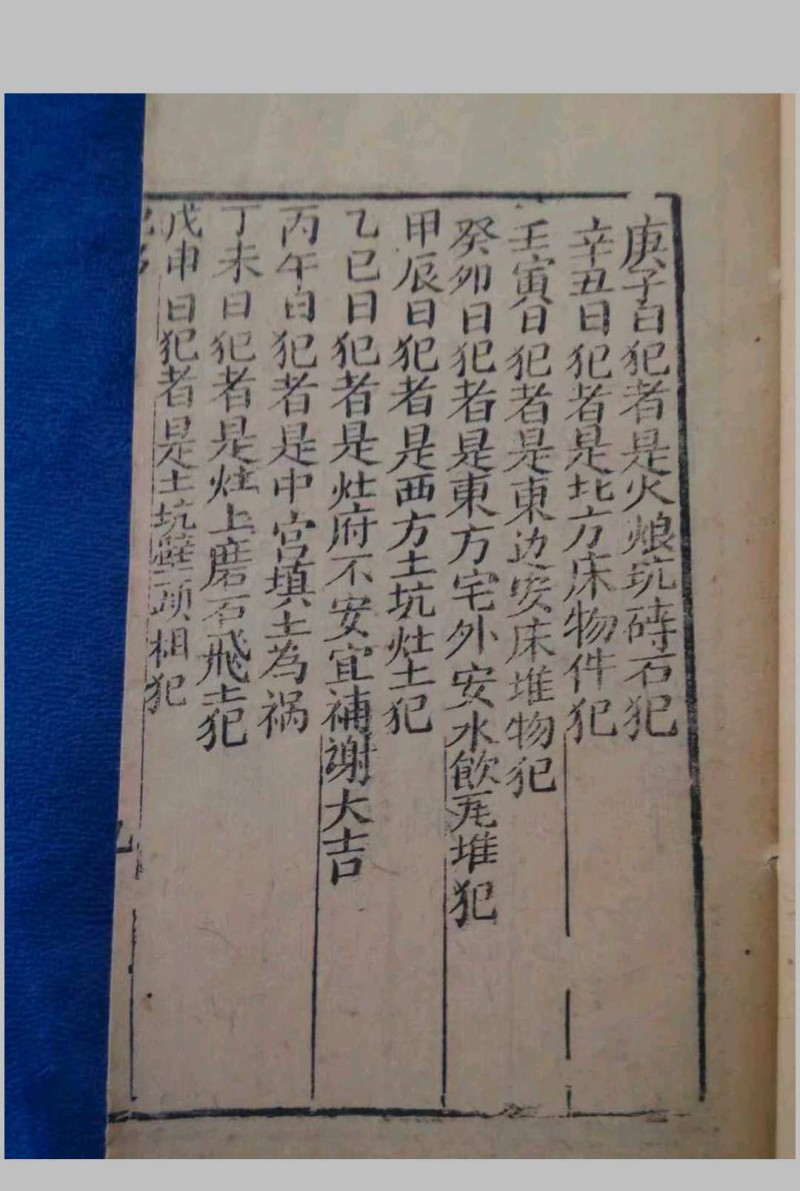 庚子日犯者是火烺坑磚石犯
辛丑日犯者是北方床物件犯
壬寅日犯者是東边安床堆物犯
癸卯日犯者是東方宅外安水飲瓦堆犯
甲辰日犯者是西方土坑灶土犯
乙巳日犯者是灶府不安宜補謝大吉
丙午日犯者是中宮填土為祸
丁未日犯者是灶上磨石飛土犯
戊申日犯者是土坑壁頭相犯
九